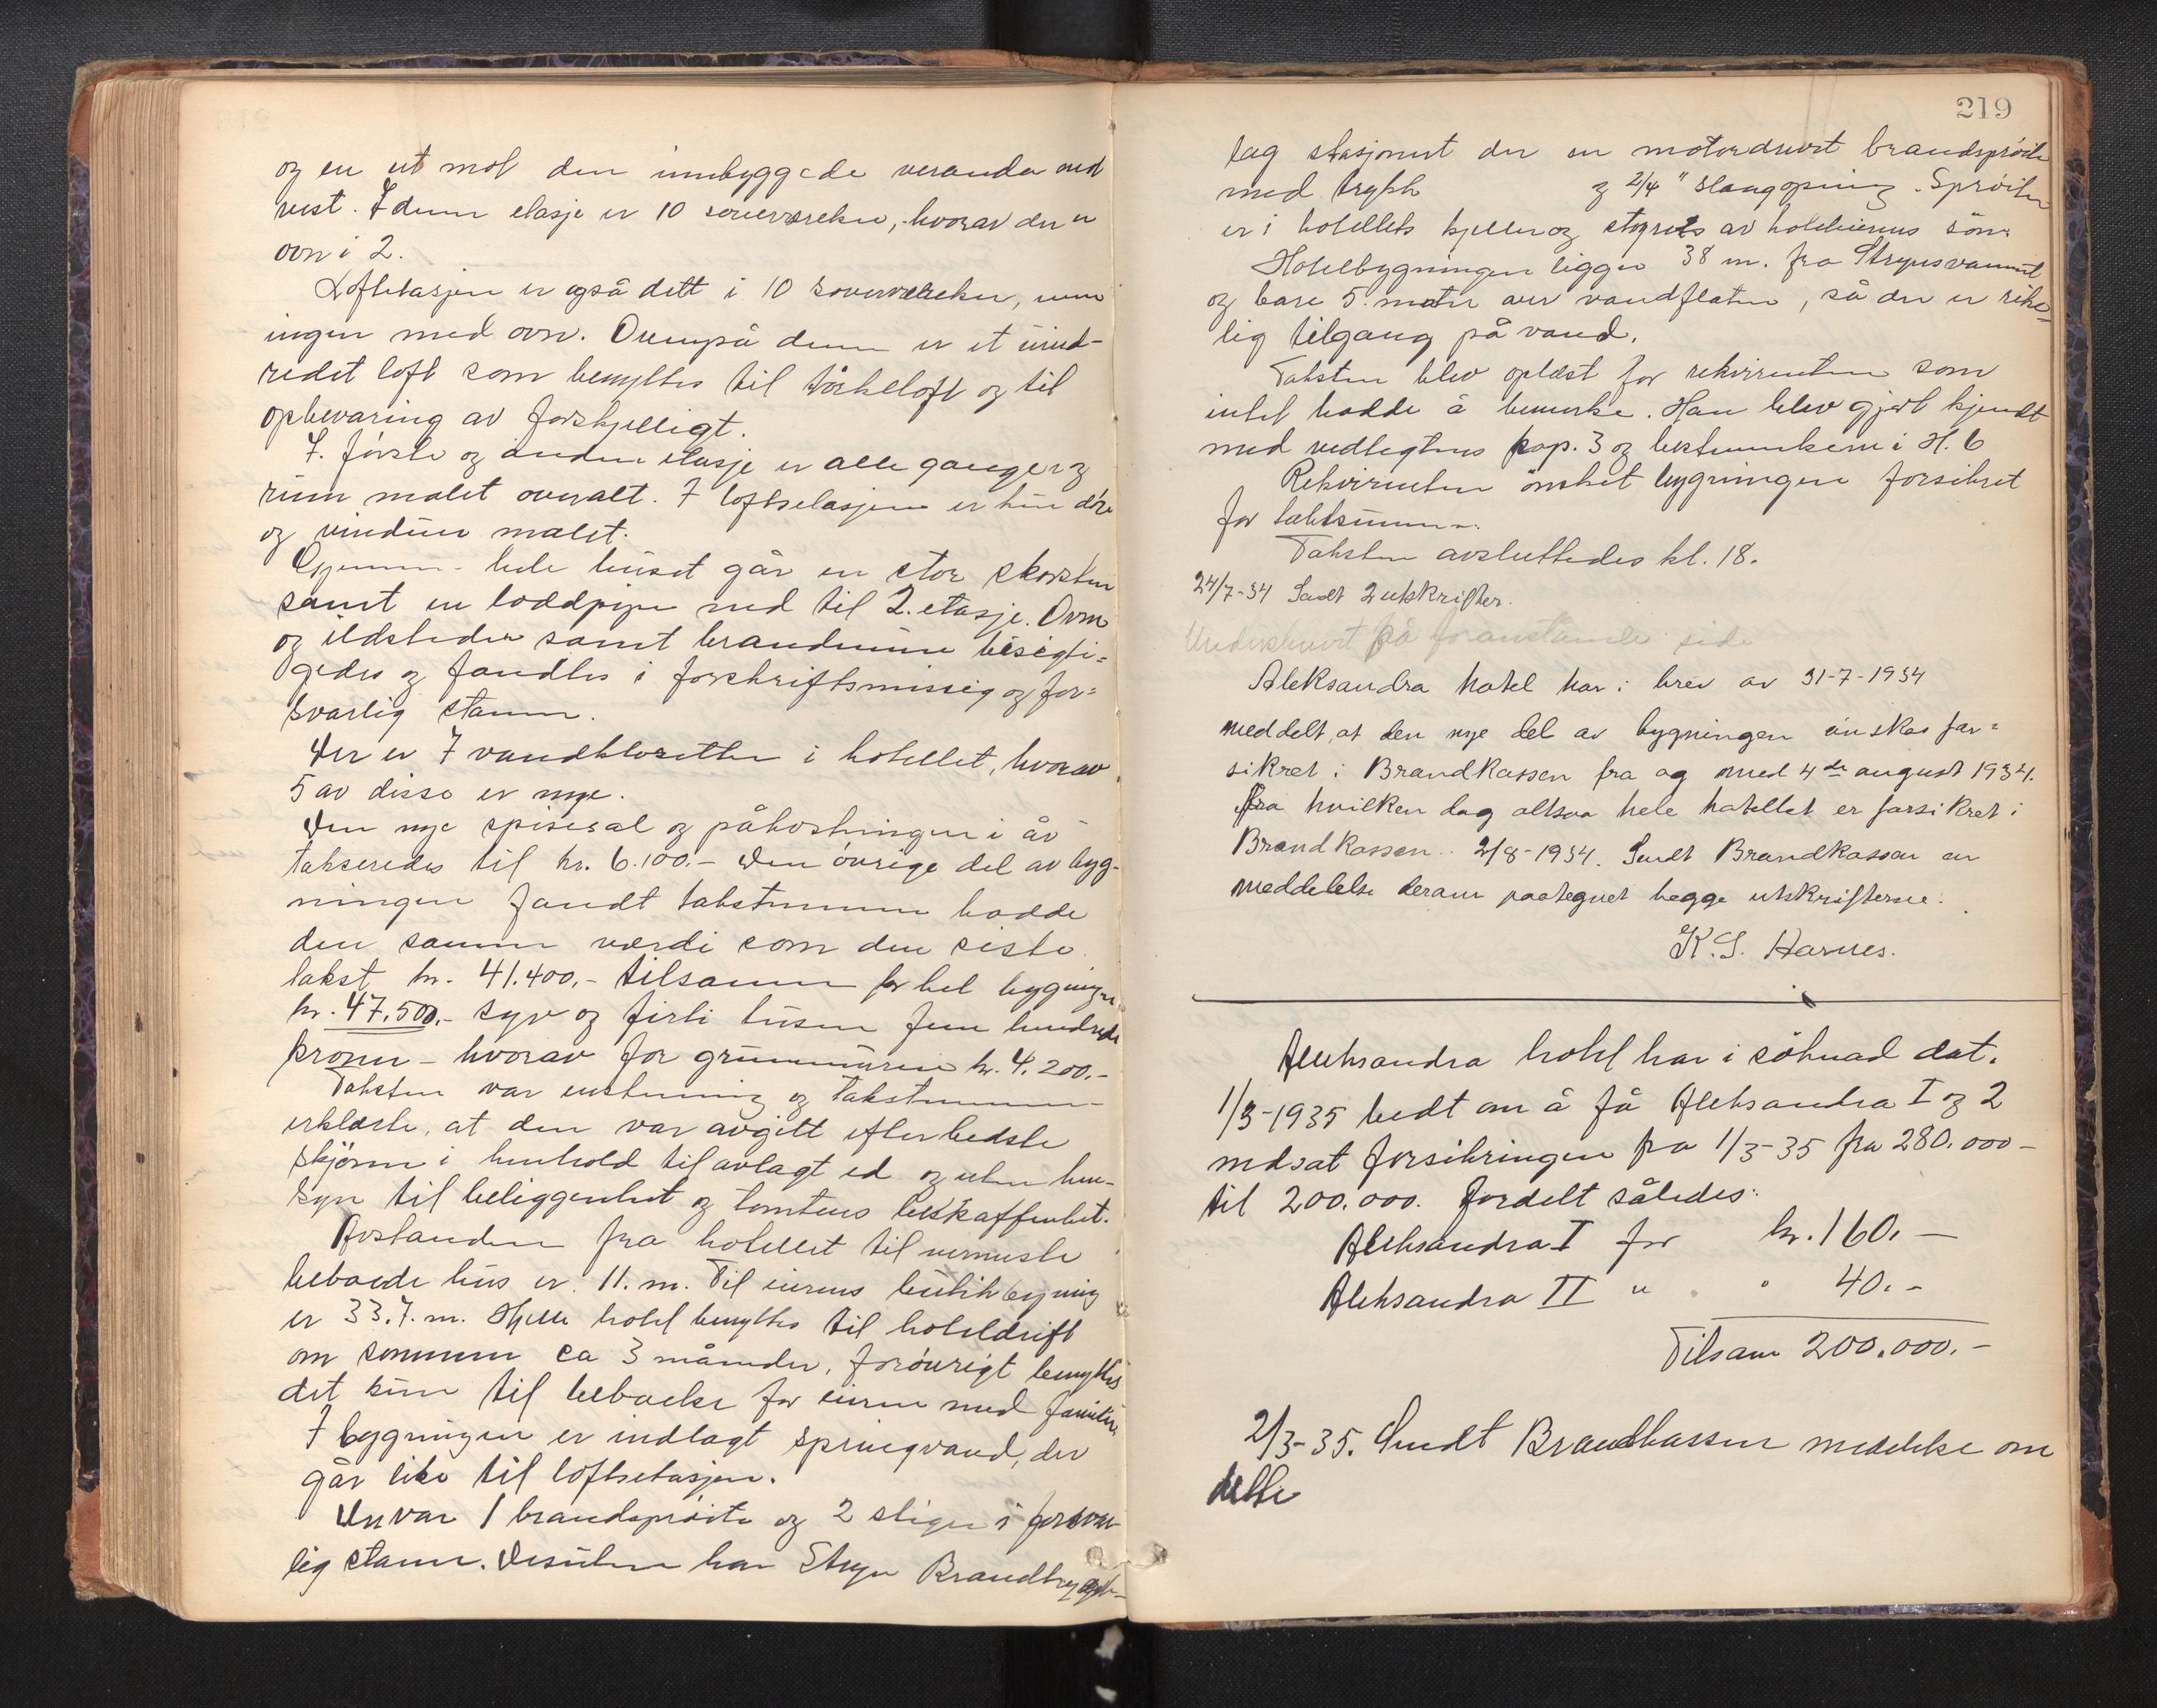 og en ut mot den innbyggede veranda mot
vest. I denne etasje er 10 soveværelser, hvorav der er
ovn i 2.
Loftetasjen er også delt i 10 soveværelser, men
ingen med ovn. Ovenpå denne er et uind-
redet loft som benyttes til tørkeloft og til
opbevaring av forskjelligt.
I første og anden etasje er alle ganger og
rum malet overalt. I loftsetasjen er kun döre
og vinduer malet.
Gjennem hele huset går en stor skorsten
samt en loddpipe ned til 2. etasje. Ovne
og ildsteder samt brandmure besigti-
gedes og fandtes i forskriftsmessig og for-
svarlig stann.
Der er 7 vandklosetter i hotellet, hvorav
5 av disse er nye.
Den nye spisesal og påkostningen i år
takseredes til kr. 6.100.- Den övrige del av byg-
ningen fandt takstmennene hadde
den samme værdi som den siste
takst kr. 41.400.- tilsammen for hel bygningen
kr. 47.500.- syv og firti tusen fem hundrede
kroner - hvorav for grunnmuren kr. 4.200.-
Taksten var enstemmig og takstmennene
erklærte, at den var avgitt efter bedste
skjönn i henhold til avlagt ed og uten hen-
syn til beliggenhet og tomtens beskaffenhet.
Avstanden fra hotellet til nærmeste
beboede hus er 11. m. Til eierens butikbygning
er 33.7. m. Hjelle hotel benyttes til hoteldrift
om sommeren ca 3 måneder, forövrigt benyttes
det kun til beboelse for eieren med familie.
I bygningen er indlagt springvand, der
går like til loftsetasjen.
Der var 1 brandspröite og 2 stiger i forsvar-
lig stann. Desuten har Stryn Brandtrygde-
219
lag stasjonert der en motordrevet brandspröite
med trykk og 2/4" slangeopning. Spröiten
er i hotellets kjeller og styres av hoteleierens sön.
Hotelbygningen ligger 38 m. fra Strynsvannet
og bare 5. meter over vandflaten, så der er rike-
lig tilgang på vand.
Taksten blev oplæst for rekvirenten som
intet hadde å bemerke. Han blev gjort kjendt
med vedtegtenes kap. 3 og bestemmelsene i H. 6
Rekvirenten önsket bygningen forsikret
for takstsummen.
Taksten avsluttedes kl. 18.
24/7-34 Sendt 2 utskrifter.
Underskrevet på foranstående side
Aleksandra hotel har i brev av 31-7-1934
meddelt, at den nye del av bygningen önskes for-
sikret i Brandkassen fra og med 4de august 1934.
fra hvilken dag altsaa hele hotellet er forsikret i
Brandkassen. 2/8-1934. Sendt Brandkassen en
meddelelse derom paategnet begge utskrifterne.
K. S. Hannes.
Aleksandra hotel har i söknad dat.
1/3-1935 bedt om å få Aleksandra I og 2
nedsat forsikringen fra 1/3-35 fra 280.000-
til 200.000. Fordelt således:
Aleksandra I for kr. 160.-
Aleksandra II " " 40.-
Tilsam 200.000.-
2/3-35. Sendt Brandkassen meddelse om
dette